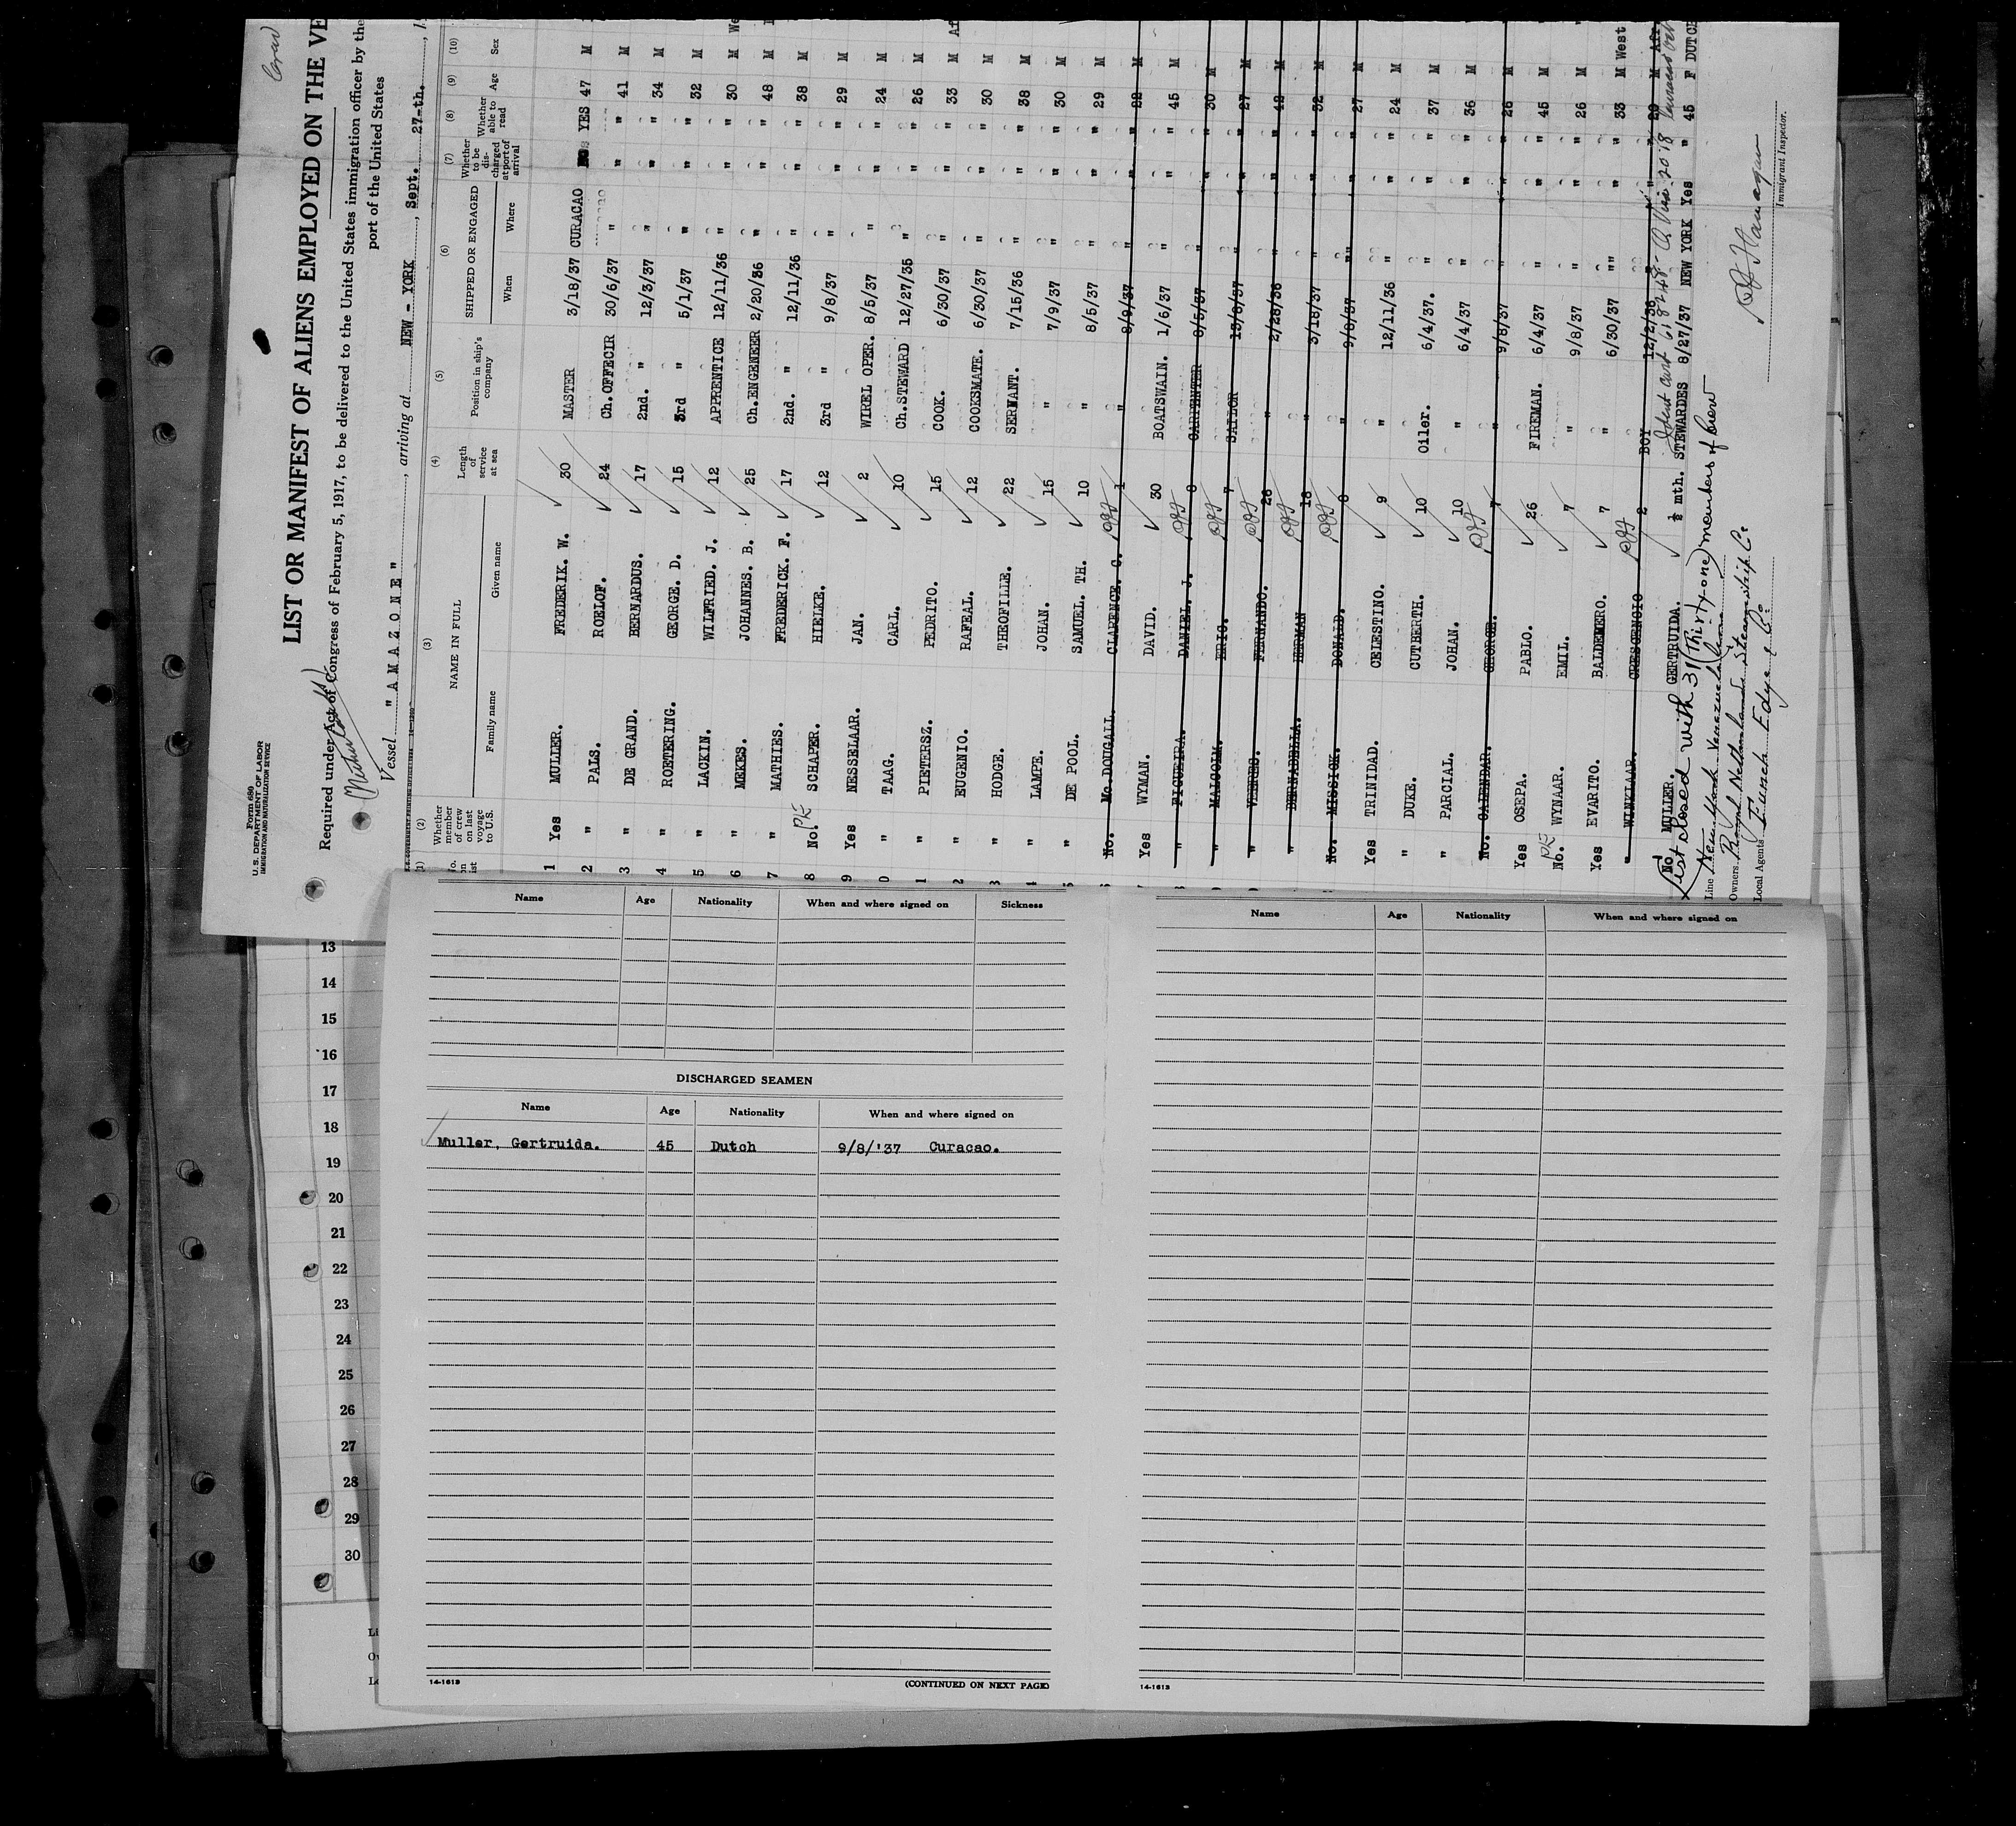 Form 680
U. S. DEPARTMENT OF LABOR
IMMIGRATION AND NATURALIZATION SERVICE
LIST OR MANIFEST OF ALIENS EMPLOYED ON THE VE
Required under Act of Congress of February 5, 1917, to be delivered to the United States immigration officer by the
port of the United States
Vessel "AMAZONE", arriving at NEW - YORK, Sept. 27-th.
(1) (2) (3) (4) (5) (6) (7) (8) (9) (10)
Whether member of crew on last voyage to U.S. NAME IN FULL Family name Given name Length of service at sea Position in ship's company SHIPPED OR ENGAGED When Where Whether to be discharged at port of arrival Whether able to read Age Sex
1 Yes MULLER. FREDERIK. W. 30 MASTER 3/18/37 CURACAO YES 47 M
2 " PALS. ROELOF. 24 Ch.OFFECIR 30/6/37 " " " 41 M
3 " DE GRAND. BERNARDUS. 17 2nd. " 12/3/37 " " " 34 M
4 " ROETERING. GEORGE. D. 15 3rd " 5/1/37 " " " 32 M
5 " LACKIN. WILFRIED. J. 12 APPRENTICE 12/11/36 " " " 30 M We
6 " MEKES. JOHANNES. B. 25 Ch.ENGENEER 2/20/36 " " " 48 M
7 " MATHIES. FREDERICK. F. 17 2nd. " 12/11/36 " " " 38 M
8 No. PE SCHAPER. HIELKE. 12 3rd " 9/8/37 " " " 29 M
9 Yes NESSELAAR. JAN. 2 WIREL OPER. 8/5/37 " " " 24 M
0 " TAAG. CARL. 10 Ch.STEWARD 12/27/35 " " " 26 M
1 " PIETERSZ. PEDRITO. 15 COOK. 6/30/37 " " " 33 M Af
2 " EUGENIO. RAFEAL. 12 COOKSMATE. 6/30/37 " " " 30 M
3 " HODGE. THEOFILLE. 22 SERNANT. 7/15/36 " " " 38 M
4 " LAMPE. JOHAN. 15 " 7/9/37 " " " 30 M
5 " DE POOL. SAMUEL. TH. 10 " 8/5/37 " " " 29 M
No. Mc.DOUGALL. CLARENCE. C. 1 " 8/9/37 " " " 22 M
Yes WYMAN. DAVID. 30 BOATSWAIN. 1/6/37 " " " 45 M
" FIGUEIRA. DANIEL. J. 8 CARPENTER 8/5/37 " " " 30 M
" MALCOLM. ERIC. 7 SAILOR 13/8/37 " " " 27 M
" FERNANDO. 26 " 2/28/36 " " " 42 M
" BERNABELLA. HERMAN 18 " 3/18/37 " " " 32 M
No. MISSICK. DONALD. 8 " 9/8/37 " " " 27 M
Yes TRINIDAD. CELESTINO. 9 " 12/11/36 " " " 24 M
" DUKE. CUTBERTH. 10 Oiler. 6/4/37. " " " 37 M
" PARCIAL. JOHAN. 10 " 6/4/37 " " " 36 M
No. CALENDAR. GEORGE. 7 " 9/8/37 " " " 26 M
Yes OSEPA. PABLO. 26 FIREMAN. 6/4/37 " " " 45 M
PE No. WYNAAR. EMIL. 7 " 9/8/37 " " " 26 M
Yes EVARITO. BALDEMERO. 7 " 6/30/37 "" " " 33 M West
" WINKLAAR. CRESCENCIO 2 BOY 12/2/36 " " " 20 M Afr
No MULLER. GERTRUIDA. ½ mth. STEWARDES 8/27/37 NEW YORK Yes " 45 F DUTCH
List closed with 31 (Thirty-one) members of Crew
Line New York Venezuela Line
Owners Royal Netherlands Steamship Co
Local Agents Funch Edye & Co.
Immigrant Inspector.
Name Age Nationality When and where signed on Sickness
DISCHARGED SEAMEN
Name Age Nationality When and where signed on
Muller, Gertruida. 45 Dutch 9/8/'37 Curacao.
14-1613
(CONTINUED ON NEXT PAGE)
Name Age Nationality When and where signed on
14-1613
13
14
15
16
17
18
19
20
21
22
23
24
25
26
27
28
29
30